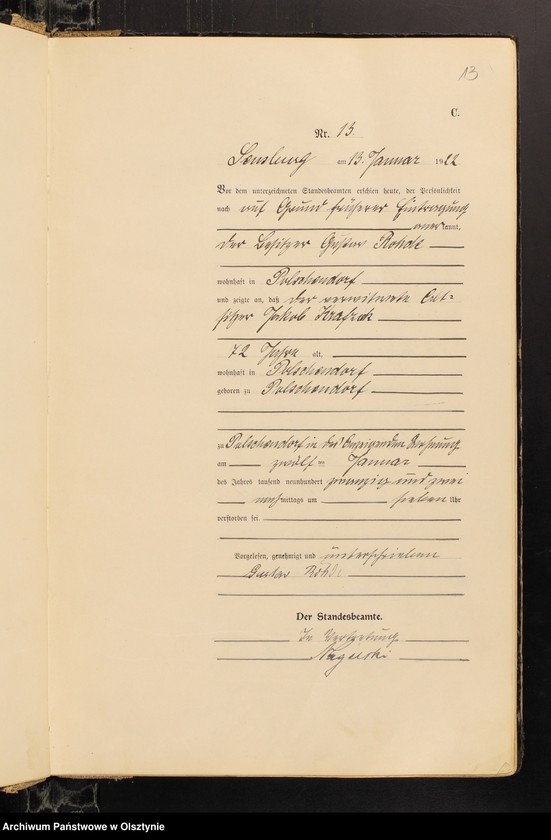 13
C.
Nr. 13
Sensburg am 13. Januar 1922
Vor dem unterzeichneten Standesbeamten erschien heute, der Persönlichkeit
nach auf Grund früherer Eintragung
anerkannt,
der Besitzer Gustav Rohde
wohnhaft in Polschendorf
und zeigte an, daß der verwitwete
Jakob
72 Jahre alt,
wohnhaft in Polschendorf
geboren zu Polschendorf
zu Polschendorf in des Anzeigenden Wohnung
am zwölften Januar
des Jahres tausend neunhundert zwanzig und zwei
nachmittags um sieben Uhr
verstorben sei.
Vorgelesen, genehmigt und unterschrieben
Gustav Rohde
Der Standesbeamte.
In Vertretung
Archiwum Państwowe w Olsztynie